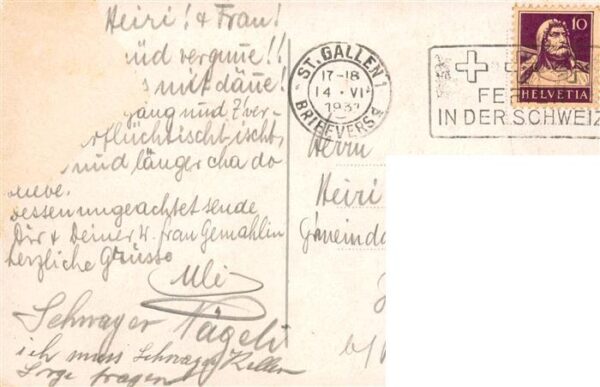 Heiri! & Frau!
üd vergune!!
mit däue!
gang nud z'ver-
pflüchtischt ischt,
und länger cha do
neve.
dessen ungeachtet sende
Dir & Deiner w. Frau Gemahlin
herzliche Grüsse
Ueli
Schwager Nägeli
ich muss Schwager Keller
Sorge tragen!
ST. GALLEN 1
17-18
14. VI
193
BRIEFVERS.
10
HELVETIA
FE
IN DER SCHWEIZ
Herrn
Heiri
Gemeinda